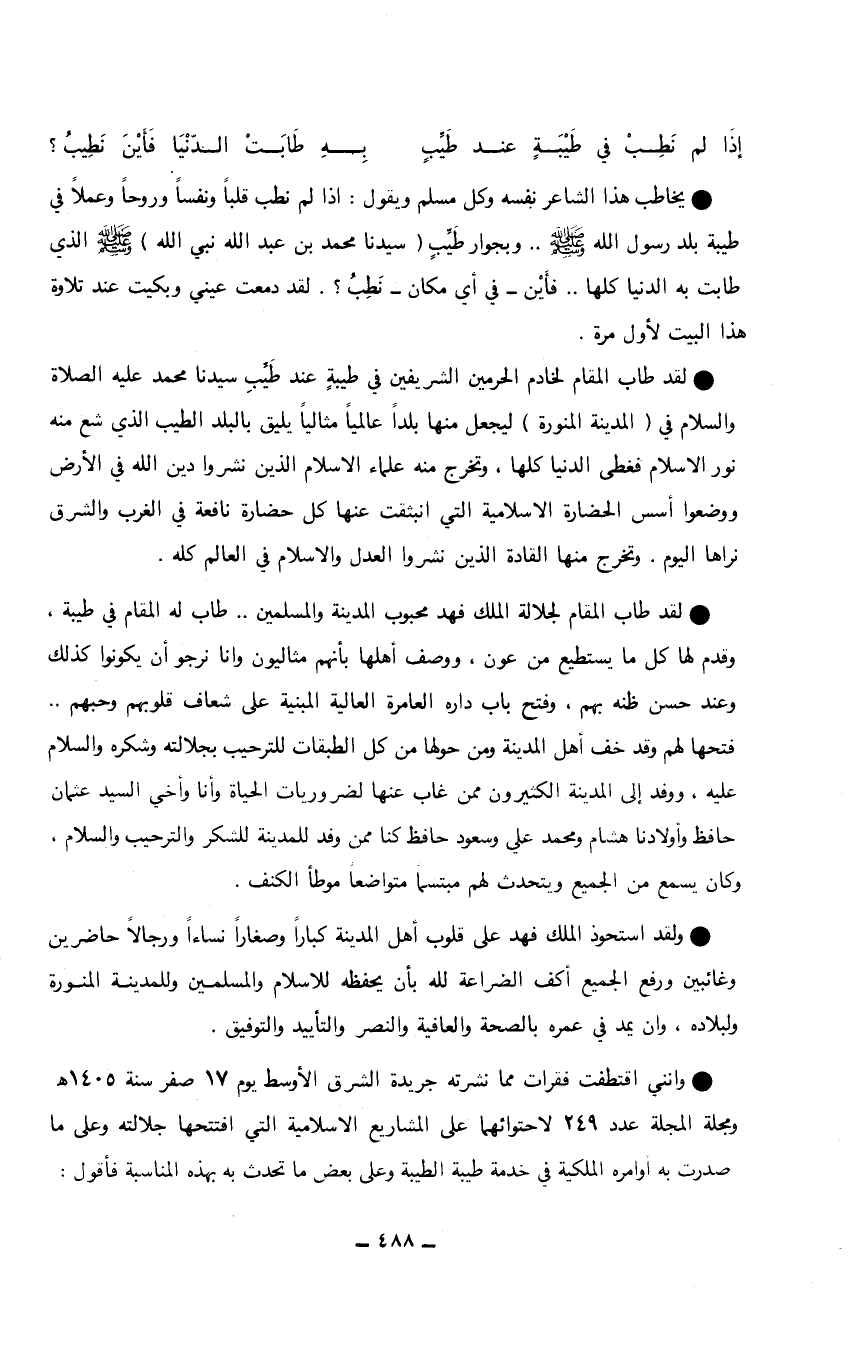 إذَا لم نَطِـبْ في طَيْبَـةٍ عنـد طَيِّبٍ بِـهِ طَابَـتْ الـدّنْيَا فَأَيْنَ نَطِيبُ ؟
● يخاطب هذا الشاعر نفسه وكل مسلم ويقول : اذا لم نطب قلباً ونفساً وروحاً وعملاً في
طيبة بلد رسول الله ﷺ .. وبجوار طَيِّبٍ ( سيدنا محمد بن عبد الله نبي الله ) ﷺ الذي
طابت به الدنيا كلها .. فأَيْن ــ في أي مكان ــ نَطِبُ ؟ . لقد دمعت عيني وبكيت عند تلاوة
هذا البيت لأول مرة .
● لقد طاب المقام لخادم الحرمين الشريفين في طيبةٍ عند طَيِّبٍ سيدنا محمد عليه الصلاة
والسلام في ( المدينة المنورة ) ليجعل منها بلداً عالمياً مثالياً يليق بالبلد الطيب الذي شع منه
نور الاسلام فغطى الدنيا كلها ، وتخرج منه علماء الاسلام الذين نشروا دين الله في الأرض
ووضعوا أسس الحضارة الاسلامية التي انبثقت عنها كل حضارة نافعة في الغرب والشرق
نراها اليوم . وتخرج منها القادة الذين نشروا العدل والاسلام في العالم كله .
● لقد طاب المقام لجلالة الملك فهد محبوب المدينة والمسلمين .. طاب له المقام في طيبة ،
وقدم لها كل ما يستطيع من عون ، ووصف أهلها بأنهم مثاليون وانا نرجو أن يكونوا كذلك
وعند حسن ظنه بهم ، وفتح باب داره العامرة العالية المبنية على شعاف قلوبهم وحبهم ..
فتحها لهم وقد خف أهل المدينة ومن حولها من كل الطبقات للترحيب بجلالته وشكره والسلام
عليه ، ووفد إلى المدينة الكثيرون ممن غاب عنها لضروريات الحياة وأنا وأخي السيد عثمان
حافظ وأولادنا هشام ومحمد علي وسعود حافظ كنا ممن وفد للمدينة للشكر والترحيب والسلام ،
وكان يسمع من الجميع ويتحدث لهم مبتسما متواضعاً موطأ الكنف .
● ولقد استحوذ الملك فهد على قلوب أهل المدينة كباراً وصغاراً نساءاً ورجالاً حاضرين
وغائبين ورفع الجميع أكف الضراعة لله بأن يحفظه للاسلام والمسلمـين وللمدينـة المنـورة
ولبلاده ، وان يمد في عمره بالصحة والعافية والنصر والتأييد والتوفيق .
● وانني اقتطفت فقرات مما نشرته جريدة الشرق الأوسط يوم ١٧ صفر سنة ١٤٠٥هـ
ومجلة المجلة عدد ٢٤٩ لاحتوائهما على المشاريع الاسلامية التي افتتحها جلالته وعلى ما
صدرت به أوامره الملكية في خدمة طيبة الطيبة وعلى بعض ما تحدث به بهذه المناسبة فأقول :
ــ ٤٨٨ ــ